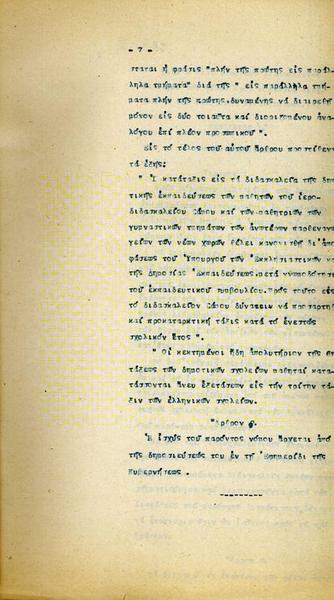 - 7 -
σταται ἡ φράσις "πλήν τῆς πρώτης εἰς παράλ-
ληλα τμήματα" διά τῆς " εἰς παράλληλα τμή-
ματα πλήν τῆς πρώτης, δυναμένης νά διαιρεθῇ
μόνον εἰς δύο τοιαῦτα καί διοριζομένου ἀνα-
λόγου ἐπί πλέον προσωπικοῦ ".
Εἰς τό τέλος τοῦ αὐτοῦ ἄρθρου προστίθεν
τά ἑξῆς:
" Ἡ κατάταξις εἰς τά διδασκαλεῖα τῆς δημ
τικῆς ἐκπαιδεύσεως τῶν μαθητῶν τοῦ ἱερο-
διδασκαλείου Σάμου καί τῶν μαθητριῶν τῶν
γυμναστικῶν τμημάτων τῶν ἀνωτέρων παρθεναγω
γείων τῶν νέων χωρῶν θέλει κανονισθῆ δι'ἀπο
φάσεως τοῦ Ὑπουργοῦ τῶν Ἐκκλησιαστικῶν κα
τῆς Δημοσίας Ἐκπαιδεύσεως, μετά γνωμοδότησ
τοῦ ἐκπαιδευτικοῦ συμβουλίου. Πρός τοῦτο εἰς
τό διδασκαλεῖον Σάμου δύναται νά προσαρτηθ
καί προκαταρκτική τάξις κατά τό ἐνεστώς
σχολικόν ἔτος ".
" Οἱ κεκτημένοι ἤδη ἀπολυτήριον τῆς
τάξεως τῶν δημοτικῶν σχολείων μαθηταί κατα-
τάσσονται ἄνευ ἐξετάσεων εἰς τήν τρίτην τά-
ξιν τῶν ἑλληνικῶν σχολείων.
"Ἄρθρον 6.
Ἡ ἰσχύς τοῦ παρόντος νόμου ἄρχεται ἀπό
τῆς δημοσιεύσεώς του ἐν τῇ Ἐφημερίδι τῆς
Κυβερνήσεως .
---------